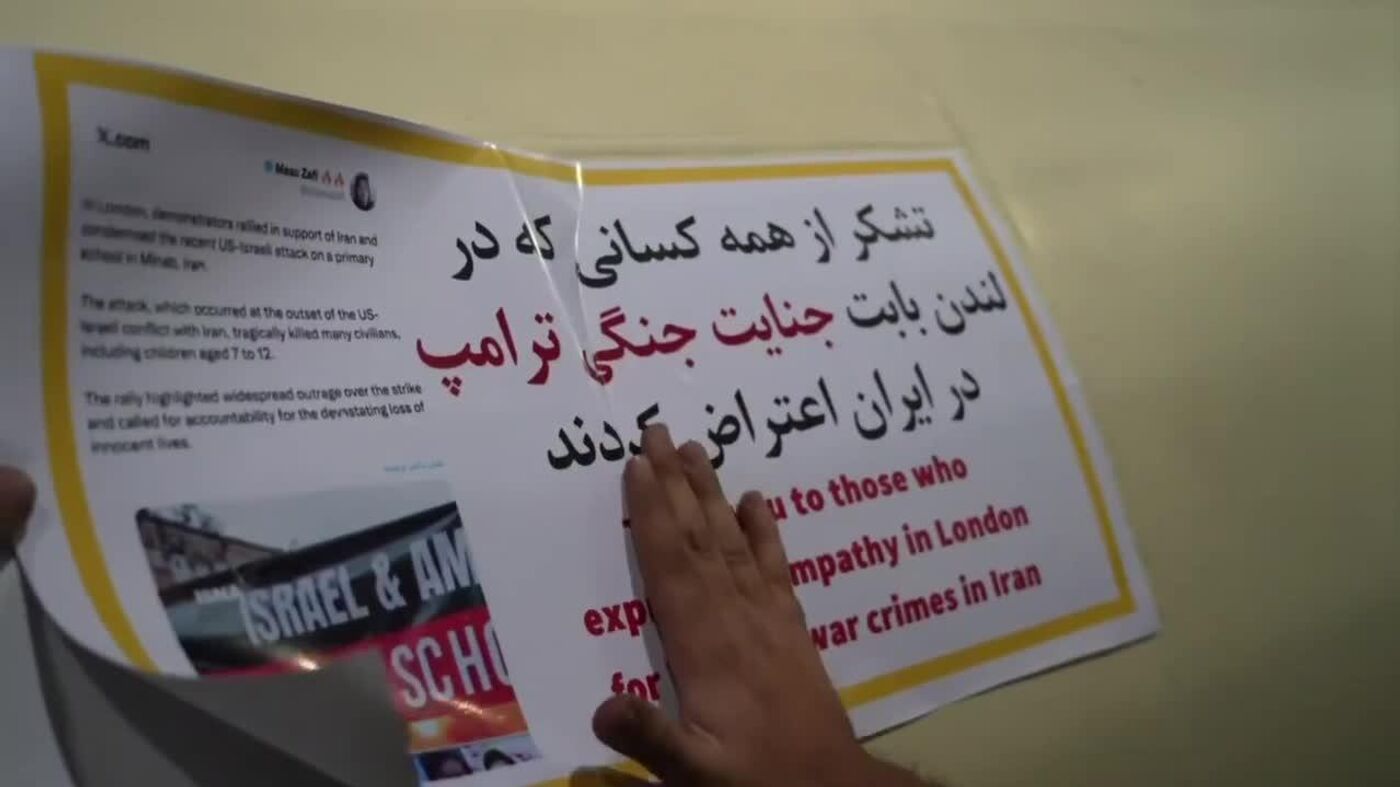 X.com
In London, demonstrators rallied in support of Iran and
condemned the recent US-Israeli attack on a primary
school in Minab, Iran.
The attack, which occurred at the outset of the US-
Israeli conflict with Iran, tragically killed many civilians,
including children aged 7 to 12.
The rally highlighted widespread outrage over the strike
and called for accountability for the devastating loss of
innocent lives.
ISRAEL & AM
SCHO
تشکر از همه کسانی که در
لندن بابت جنایت جنگی ترامپ
در ایران اعتراض کردند
u to those who
exp mpathy in London
for war crimes in Iran